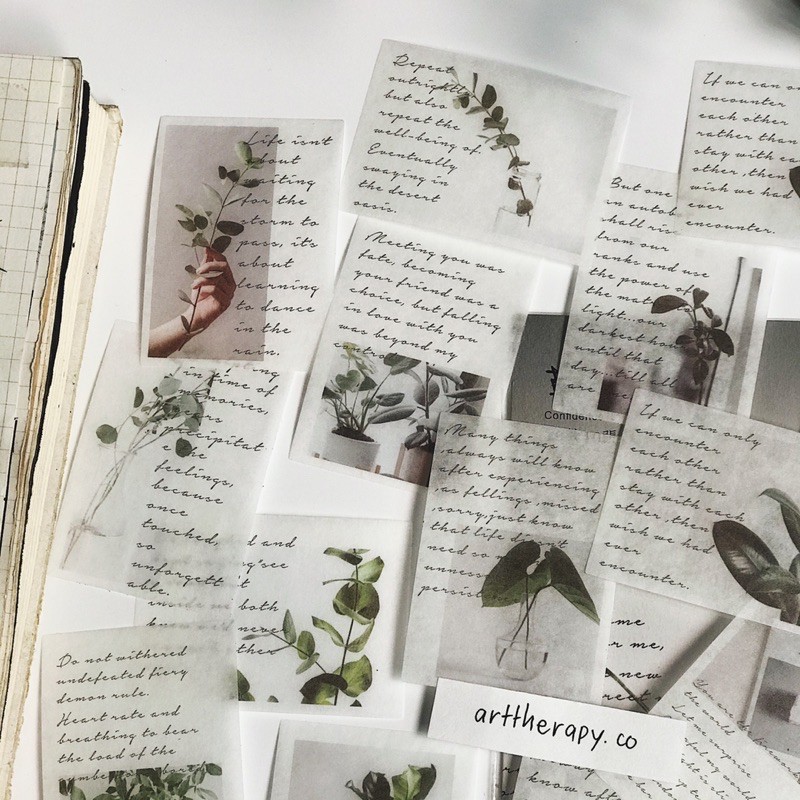 Life isn't
about
waiting
for the
storm to
pass, it's
about
learning
to dance
in the
rain.
Repeat
outright
but also
repeat the
well-being of
Eventually
swaying in
the desert
oasis.
If we can o
encounter
each other
rather than
stay with ea
other, then
wish we had
ever
encounter.
But one
an autob
shall ris
from our
ranks and use
the power of
the mat
light...our
darkest ho
until that
day, till all
are
Meeting you was
fate, becoming
your friend was a
choice, but falling
in love with you
was beyond my
contro
Confiden
in time of
memories,
precipitat
e the
feelings,
because
once
touched,
so
unforgett
able.
Many things
always will know
after experiencing
as fellings, missed
sorry, just know
that life d
need so
unness
persist
If we can only
encounter
each other
rather than
stay with each
other, then
wish we had
ever
encounter.
d and
ng'see
both
never
ther
Do not withered
undefeated fiery
demon rule.
Heart rate and
breathing to bear
the load of the
me
r me,
new
the world
Let me surprise
arttherapy.co
know afte